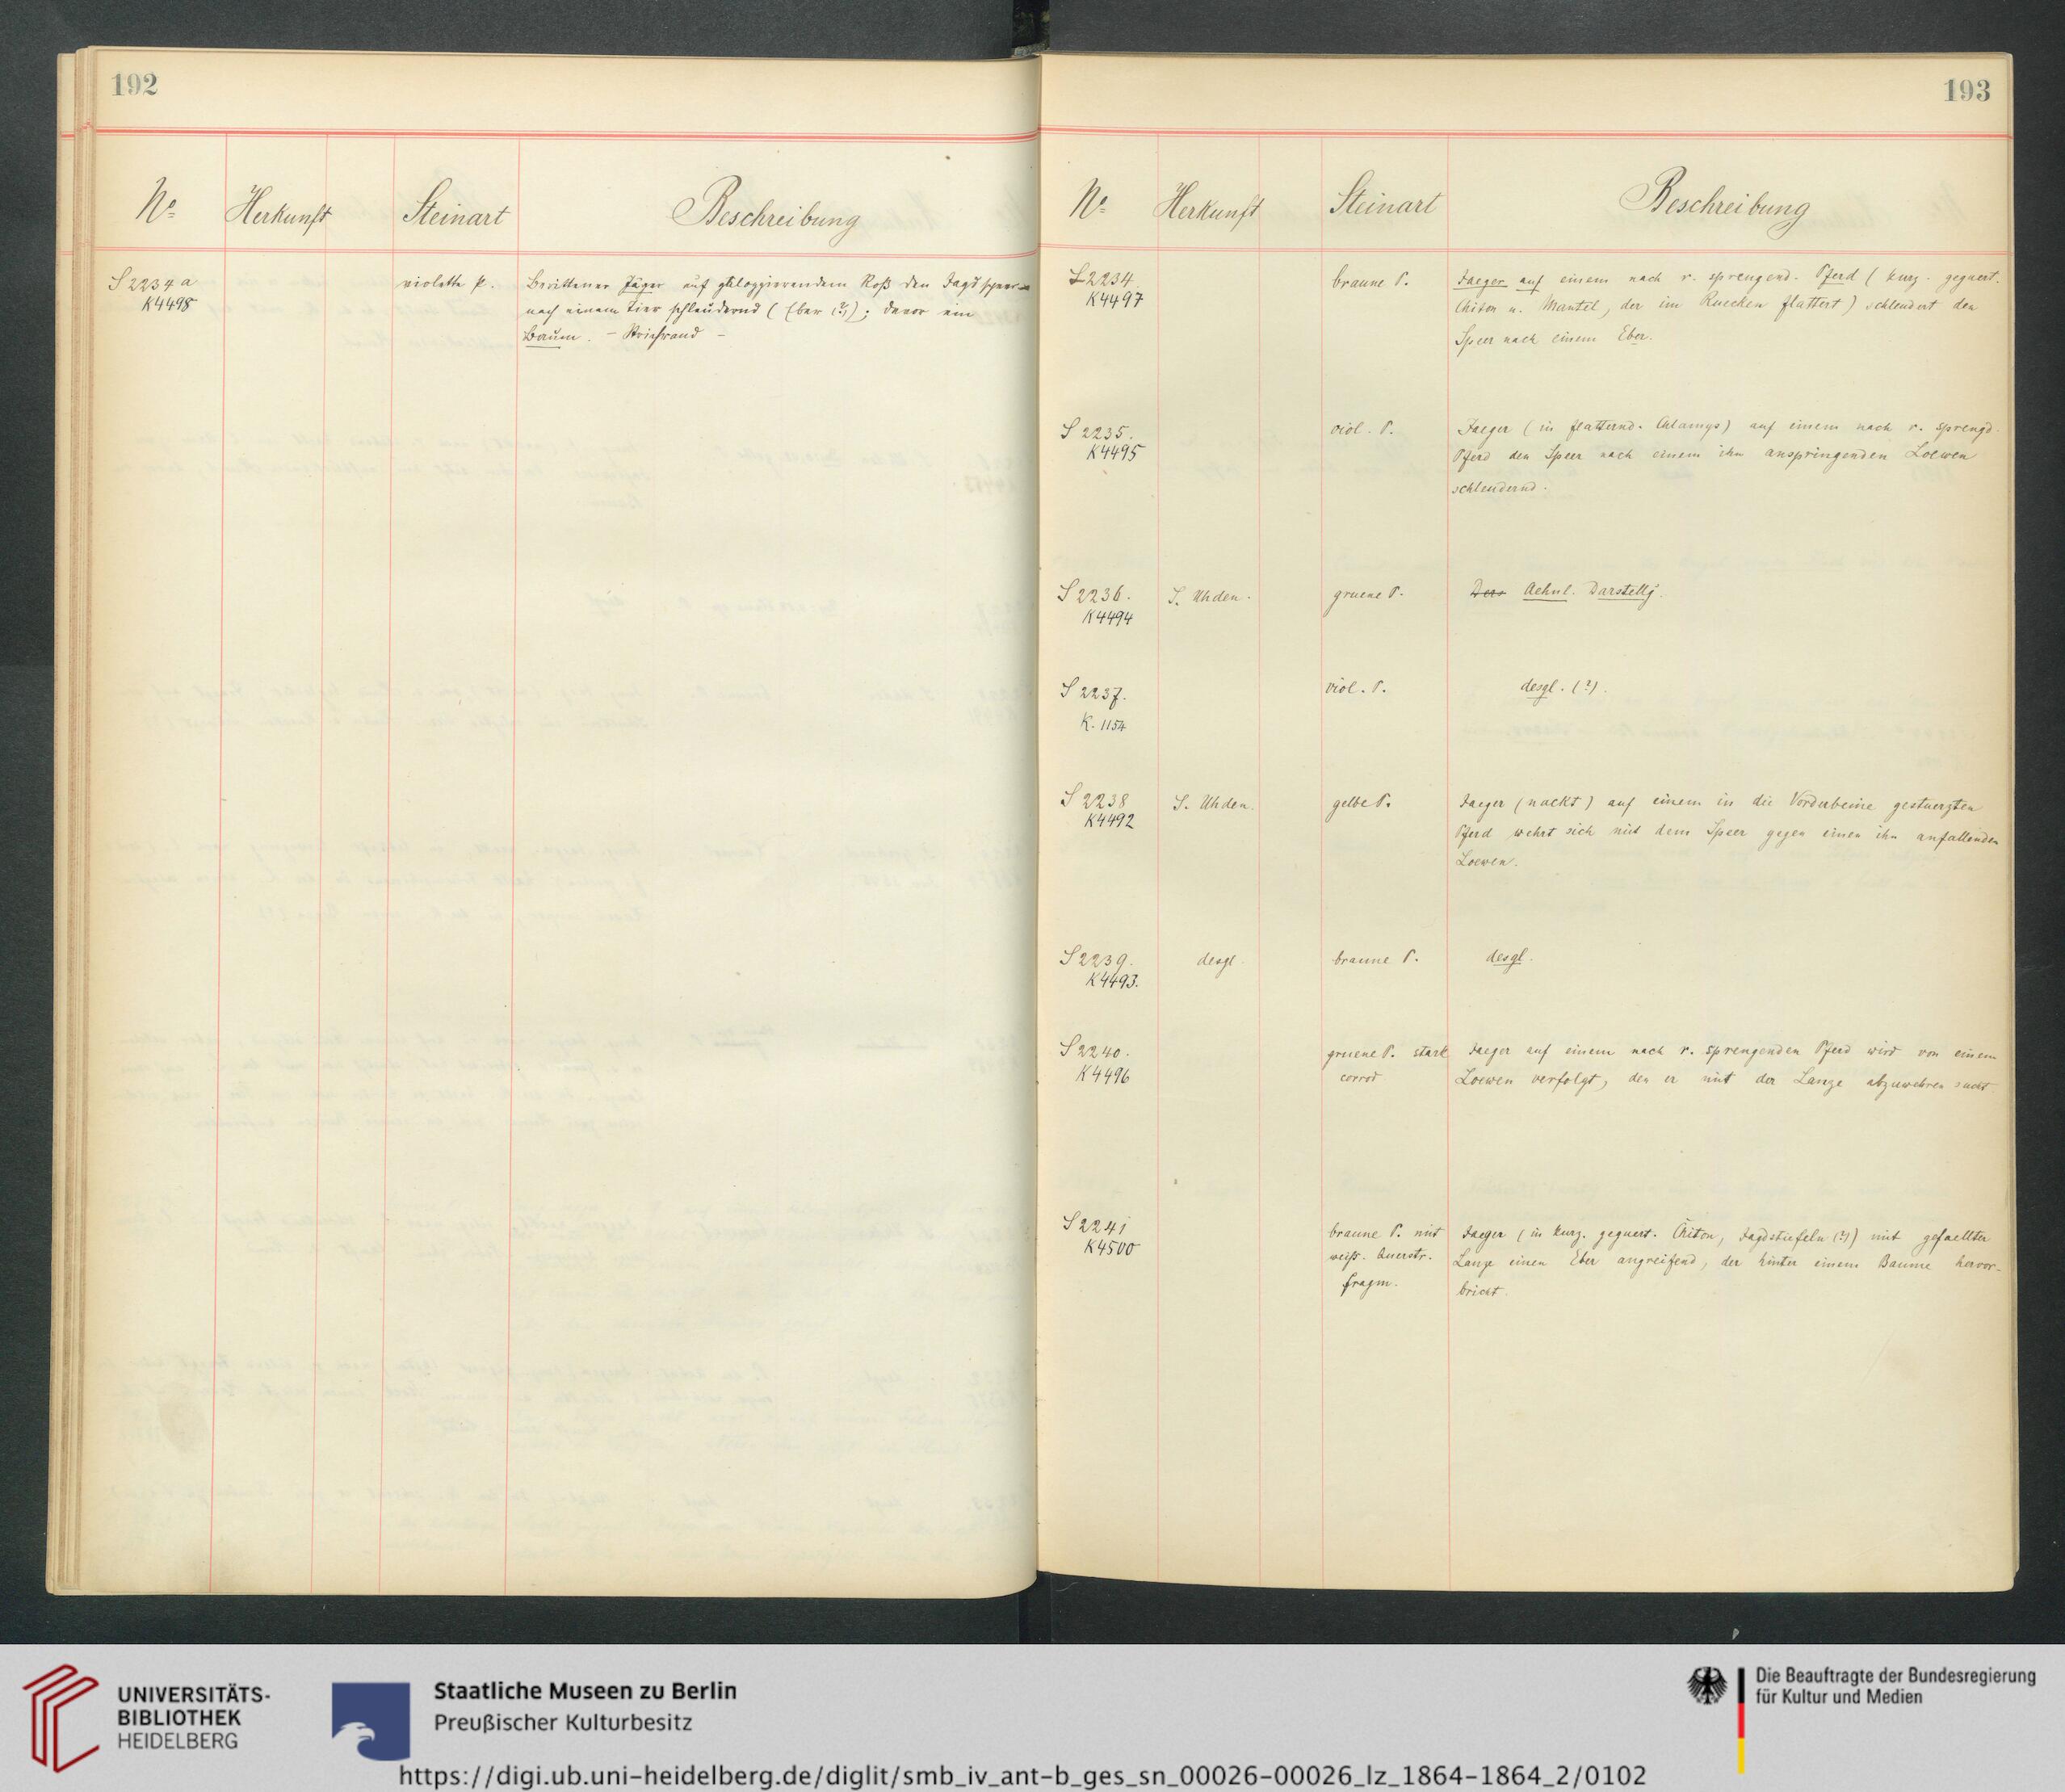 192
Nº Herkunft Steinart Beschreibung
S 2234 a violette P. Berittener Jäger auf galoppierendem Roß den Jagdspeer
K4498 nach einem Tier schleudernd (Eber (?)); davor ein
Baum. – Strichrand –
193
Nº Herkunft Steinart Beschreibung
S 2234. braune P. Jaeger auf einem nach r. sprengend. Pferd (kurz. geguert.
K4497 Chiton u. Mantel, der im Ruecken flattert) schleudert den
Speer nach einem Eber.
S 2235. viol. P. Jaeger (in flatternd. Chlamys) auf einem nach r. sprengd.
K4495 Pferd den Speer nach einem ihn anspringenden Loewen
schleudernd.
S 2236. S. Uhden. gruene P. Ders Aehnl. Darstellg.
K4494
S 2237. viol. P. desgl. (?).
K. 1154
S 2238 S. Uhden. gelbe P. Jaeger (nackt) auf einem in die Vorderbeine gestuerzten
K4492 Pferd wehrt sich mit dem Speer gegen einen ihn anfallenden
Loewen.
S 2239. desgl. braune P. desgl.
K4493.
S 2240. gruene P. stark Jaeger auf einem nach r. sprengenden Pferd wird von einem
K4496 corrod Loewen verfolgt, den er mit der Lanze abzuwehren sucht.
S 2241 braune P. mit Jaeger (in kurz. geguert. Chiton, Jagdstiefeln (?)) mit gefaellter
K4500 weiss. Querstr. Lanze einen Eber angreifend, der hinter einem Baume hervor-
fragm. bricht.
UNIVERSITÄTS-
BIBLIOTHEK
HEIDELBERG
Staatliche Museen zu Berlin
Preußischer Kulturbesitz
Die Beauftragte der Bundesregierung
für Kultur und Medien
https://digi.ub.uni-heidelberg.de/diglit/smb_iv_ant-b_ges_sn_00026-00026_lz_1864-1864_2/0102